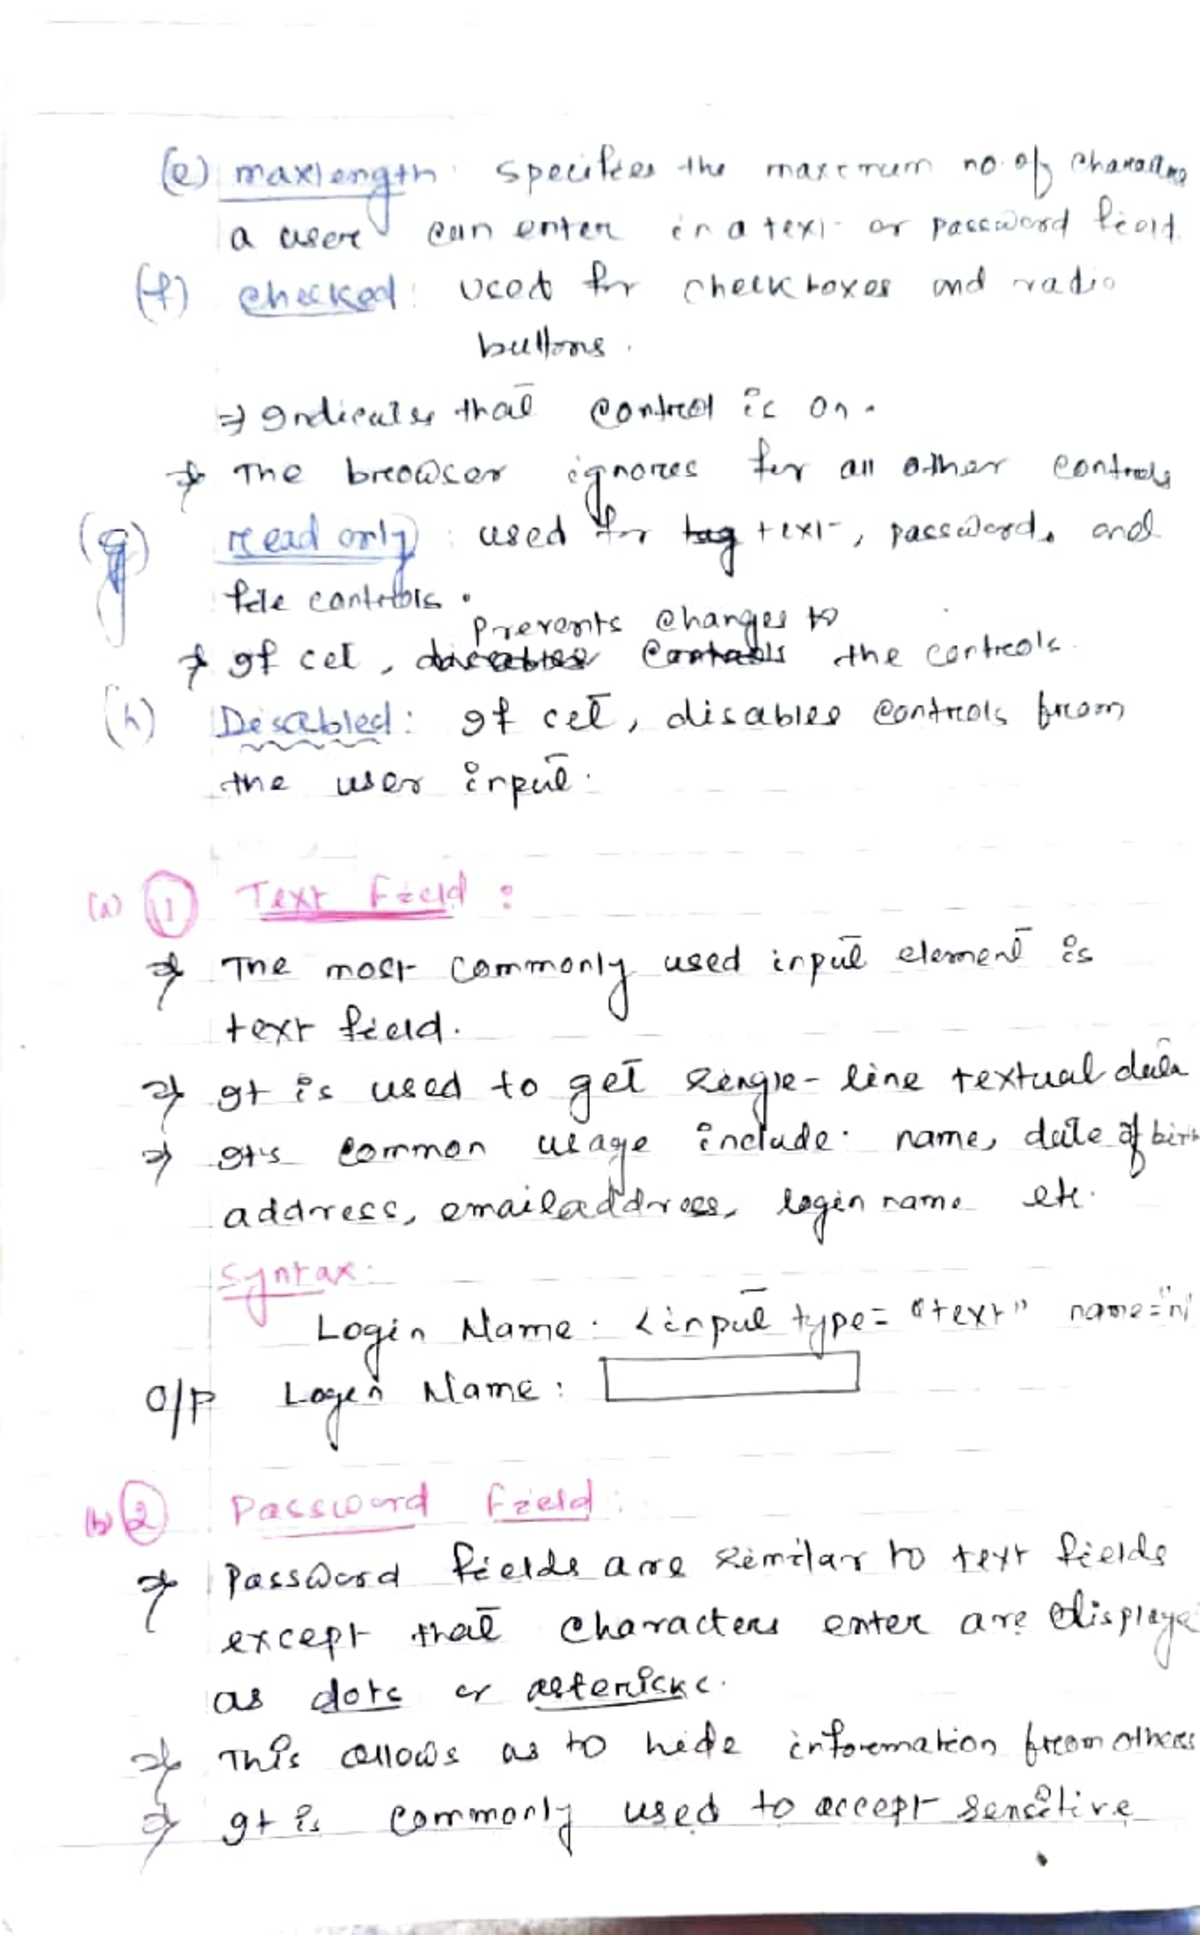 (e) maxlength: specifies the maximum no. of characters
a user can enter in a text or password field.
(f) checked: used for checkboxes and radio
buttons.
⇒ Indicates that control is on.
⇒ The browser ignores for all other controls
(g) read only: used for tag text, password, and
file controls.
prevents changes to
⇒ If set, disables controls the controls.
(h) Disabled: If set, disables controls from
the user input.
(a) (1) Text Field:
⇒ The most commonly used input element is
text field.
⇒ It is used to get single-line textual data
⇒ It's common usage include: name, date of birth
address, emailaddress, login name etc.
Syntax:
Login Name: <input type="text" name="n
O/P Login Name:
(b) (2) Password Field:
⇒ Password fields are similar to text fields
except that characters enter are displaye
as dots or asterisks.
⇒ This allows as to hide information from others
⇒ It is commonly used to accept sensitive